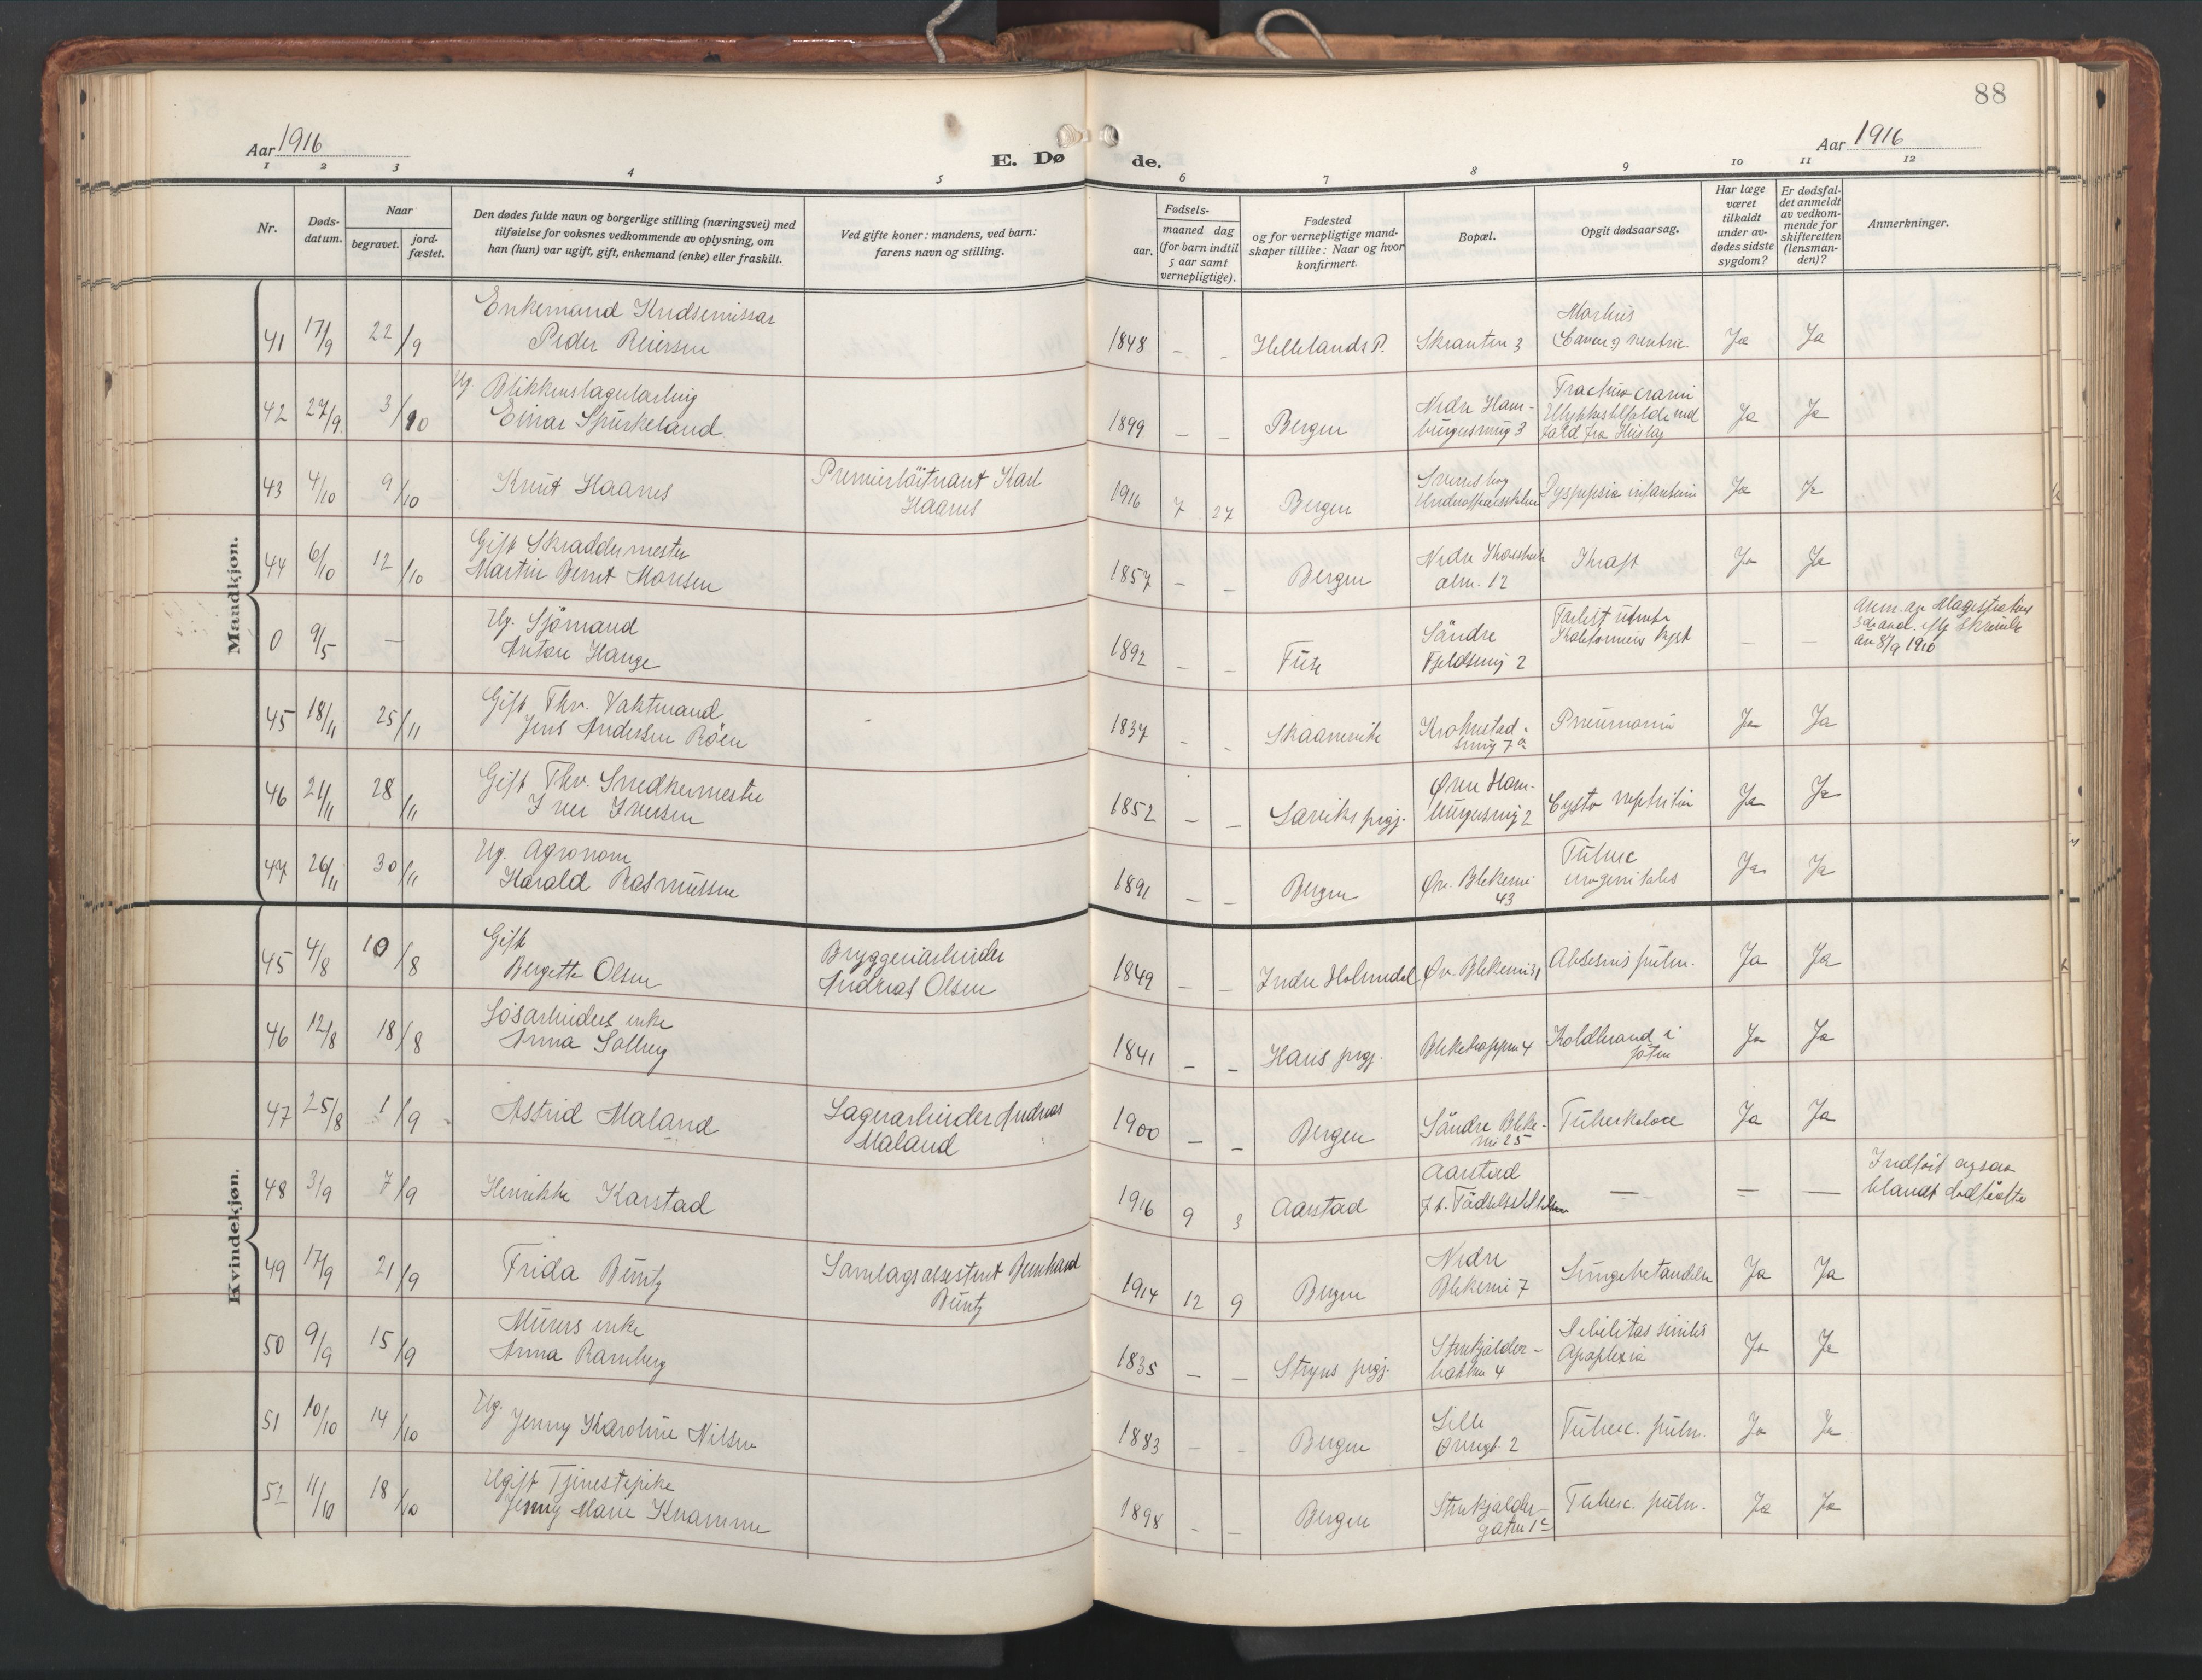 88
Aar 1916
E. Dø de.
Aar 1916
1 2 3 4 5 6 7 8 9 10 11 12
Nr.
Døds-
datum.
Naar
begravet.
jord-
fæstet.
Den dødes fulde navn og borgerlige stilling (næringsvei) med
tilføielse for voksnes vedkommende av oplysning, om
han (hun) var ugift, gift, enkemand (enke) eller fraskilt.
Ved gifte koner: mandens, ved barn:
farens navn og stilling.
Fødsels-
aar.
maaned dag
(for barn indtil
5 aar samt
vernepligtige).
Fødested
og for vernepligtige mand-
skaper tillike: Naar og hvor
konfirmert.
Bopæl.
Opgit dødsaarsag.
Har læge
været
tilkaldt
under av-
dødes sidste
sygdom?
Er dødsfal-
det anmeldt
av vedkom-
mende for
skifteretten
(lensman-
den)?
Anmerkninger.
Mandkjøn.
41 17/9 22/9 Enkemand
Peder Reiersen
1848 – – Hellelands P. Skranten 3 Morbus
Ja Ja
42 27/9 3/10 Ug. Blikkenslagerlærling
Einar Spurkeland
1899 – – Bergen Nedre Ham-
burgersmug 3
fald fra Ja Ja
43 4/10 9/10 Knut Haanes
Premierløitnant Karl
Haanes
1916 7 27 Bergen
Dyspepsia Ja Ja
44 6/10 12/10 Gift Skraddermester
Martin Bernt Monsen
1857 – Bergen Nedre
alm. 12
Ja Ja
0 9/5 – Ug. Sjømand
Anton Hauge
1892 – – Fuse Søndre
Fjeldsmug 2
Forlist utenfor
Kaliforniens kyst
– –
Anm. av Magistratens
3die avd. iflg skrivelse
av 8/9 1916
45 18/11 25/11 Gift Fhv. Vaktmand
Jens Andersen Røen
1837 – – Skaanevik Krohnstad-
smug 7a
Pneumonia Ja Ja
46 21/11 28/11 Gift Fhv. Snedkermester
Iver Iversen
1852 – – prgj. Øvre Ham-
burgersmug 2
Cysto nephritis Ja Ja
47 26/11 30/11 Ug. Agronom
Harald Rasmussen
1891 – – Bergen Øvr. Blekevei
43
Tuberc
urogenitales
Ja Ja
Kvindekjøn.
45 4/8 10/8 Gift
Bergette Olsen
Bryggeriarbeider
Andreas Olsen
1849 – – Indre Holmedal Øv. Blekevei 31 Absesus pulm. Ja Ja
46 12/8 18/8 Løsarbeiders enke
Anna Solberg
1841 – – Haus prgj. 4 Koldbrand i
foten
Ja Ja
47 25/8 1/9 Astrid Maland
Lagerarbeider Andreas
Maland
1900 – – Bergen Søndre Bleke-
vei 25
Tuberkulose Ja Ja
48 3/9 7/9 Henrikke Karstad
1916 9 3 Aarstad Aarstad
– – –
Indført ogsaa
blandt dødfødte
49 17/9 21/9 Frida Buntz
Samlagsassistent Bernhard
Buntz
1914 12 9 Bergen Nedre
Blekevei 7
Lungebetændelse Ja Ja
50 9/9 15/9 Murers enke
Anna Ramberg
1835 – – Stryns prgj. Stenkjælder-
bakken 4
Debilitas senilis
Apoplexia
Ja Ja
51 10/10 14/10 Ug. Jenny Karoline Nilsen
1883 – – Bergen Lille
Øvregt. 2
Tuberc. pulm. Ja Ja
52 11/10 18/10 Ugift Tjenestepike
Jenny Marie Knamme
1898 – – Bergen Stenkjælder-
gaten 1c
Tuberc. pulm. Ja Ja